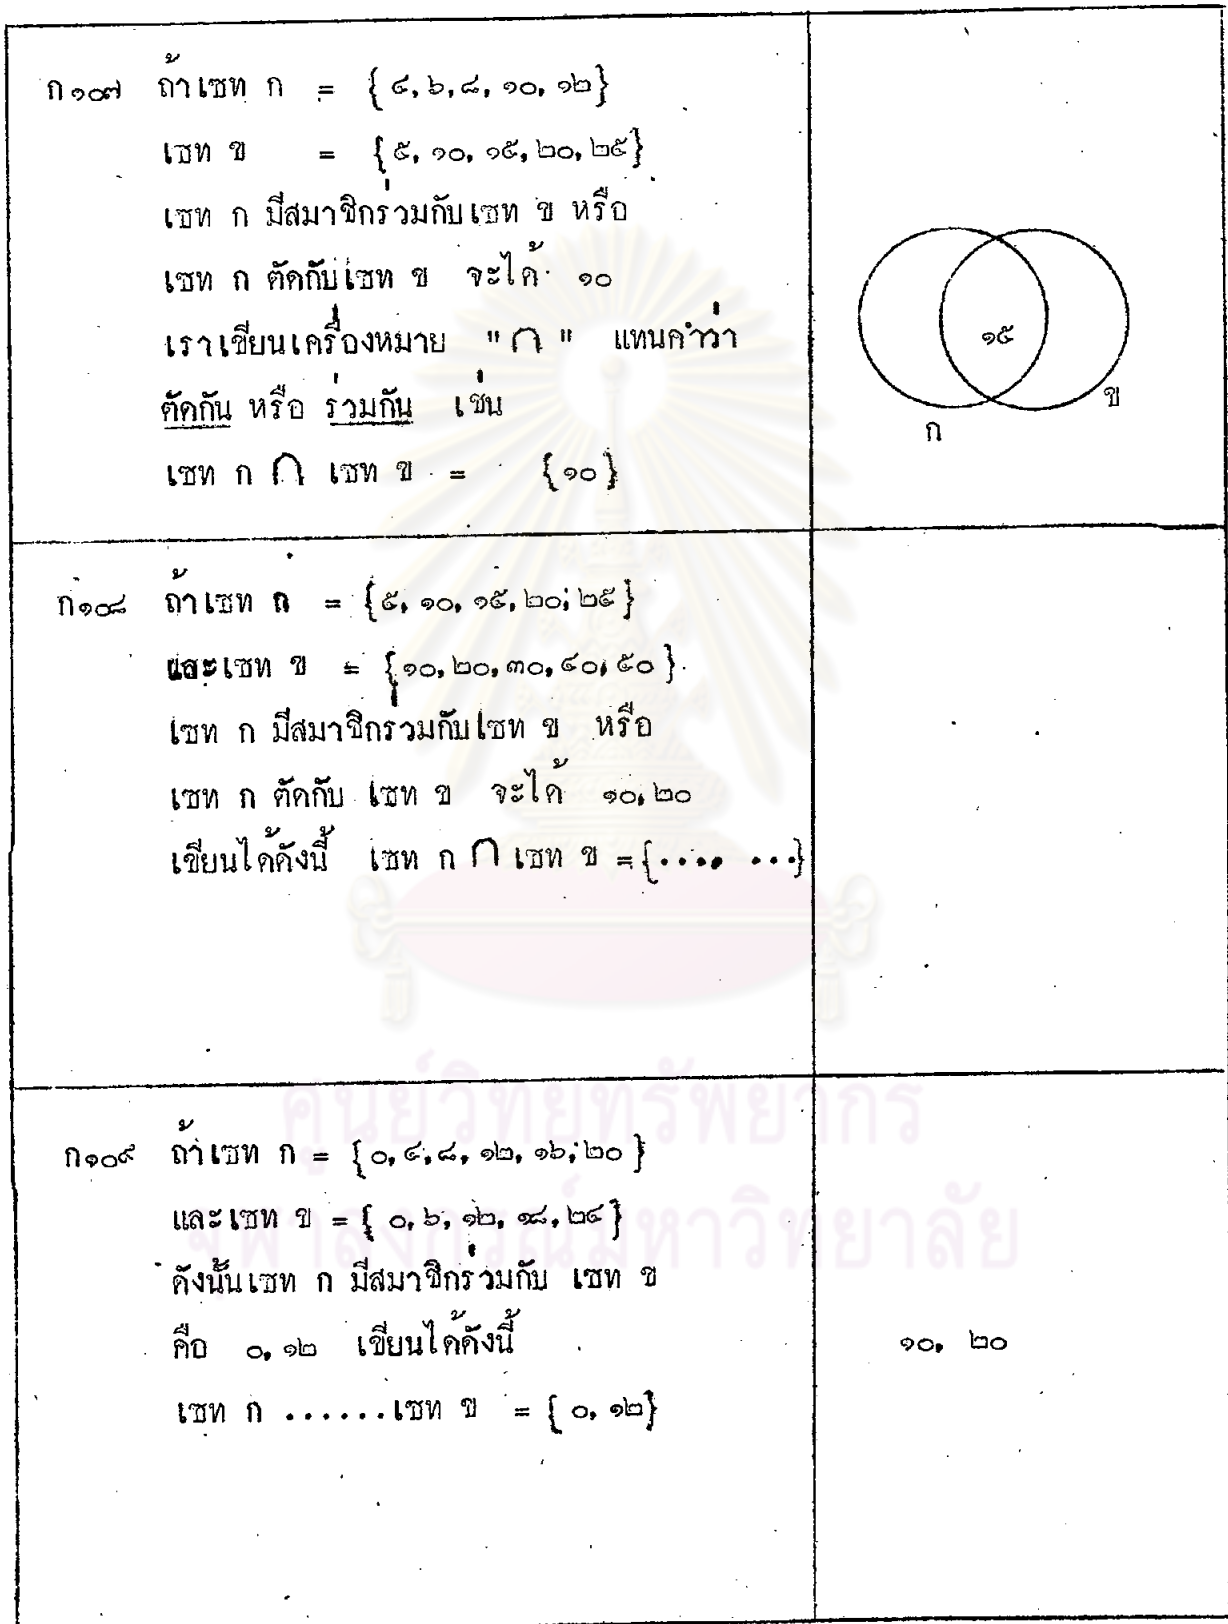 ก๑๐๗ ถ้าเซท ก = {๔, ๖, ๘, ๑๐, ๑๒}
เซท ข = {๕, ๑๐, ๑๕, ๒๐, ๒๕}
เซท ก มีสมาชิกร่วมกับเซท ข หรือ
เซท ก ตัดกับเซท ข จะได้ ๑๐
เราเขียนเครื่องหมาย "∩" แทนคำว่า
ตัดกัน หรือ ร่วมกัน เช่น
เซท ก ∩ เซท ข = {๑๐}
๑๕
ข
ก
ก๑๐๘ ถ้าเซท ก = {๕, ๑๐, ๑๕, ๒๐, ๒๕}
และเซท ข = {๑๐, ๒๐, ๓๐, ๔๐, ๕๐}
เซท ก มีสมาชิกร่วมกับเซท ข หรือ
เซท ก ตัดกับ เซท ข จะได้ ๑๐, ๒๐
เขียนได้ดังนี้ เซท ก ∩ เซท ข = {...., ...}
ศูนย์วิทยทรัพยากร
จุฬาลงกรณ์มหาวิทยาลัย
ก๑๐๙ ถ้าเซท ก = {๐, ๔, ๘, ๑๒, ๑๖, ๒๐}
และเซท ข = {๐, ๖, ๑๒, ๑๘, ๒๔}
ดังนั้นเซท ก มีสมาชิกร่วมกับ เซท ข
คือ ๐, ๑๒ เขียนได้ดังนี้
เซท ก ......เซท ข = {๐, ๑๒}
๑๐, ๒๐